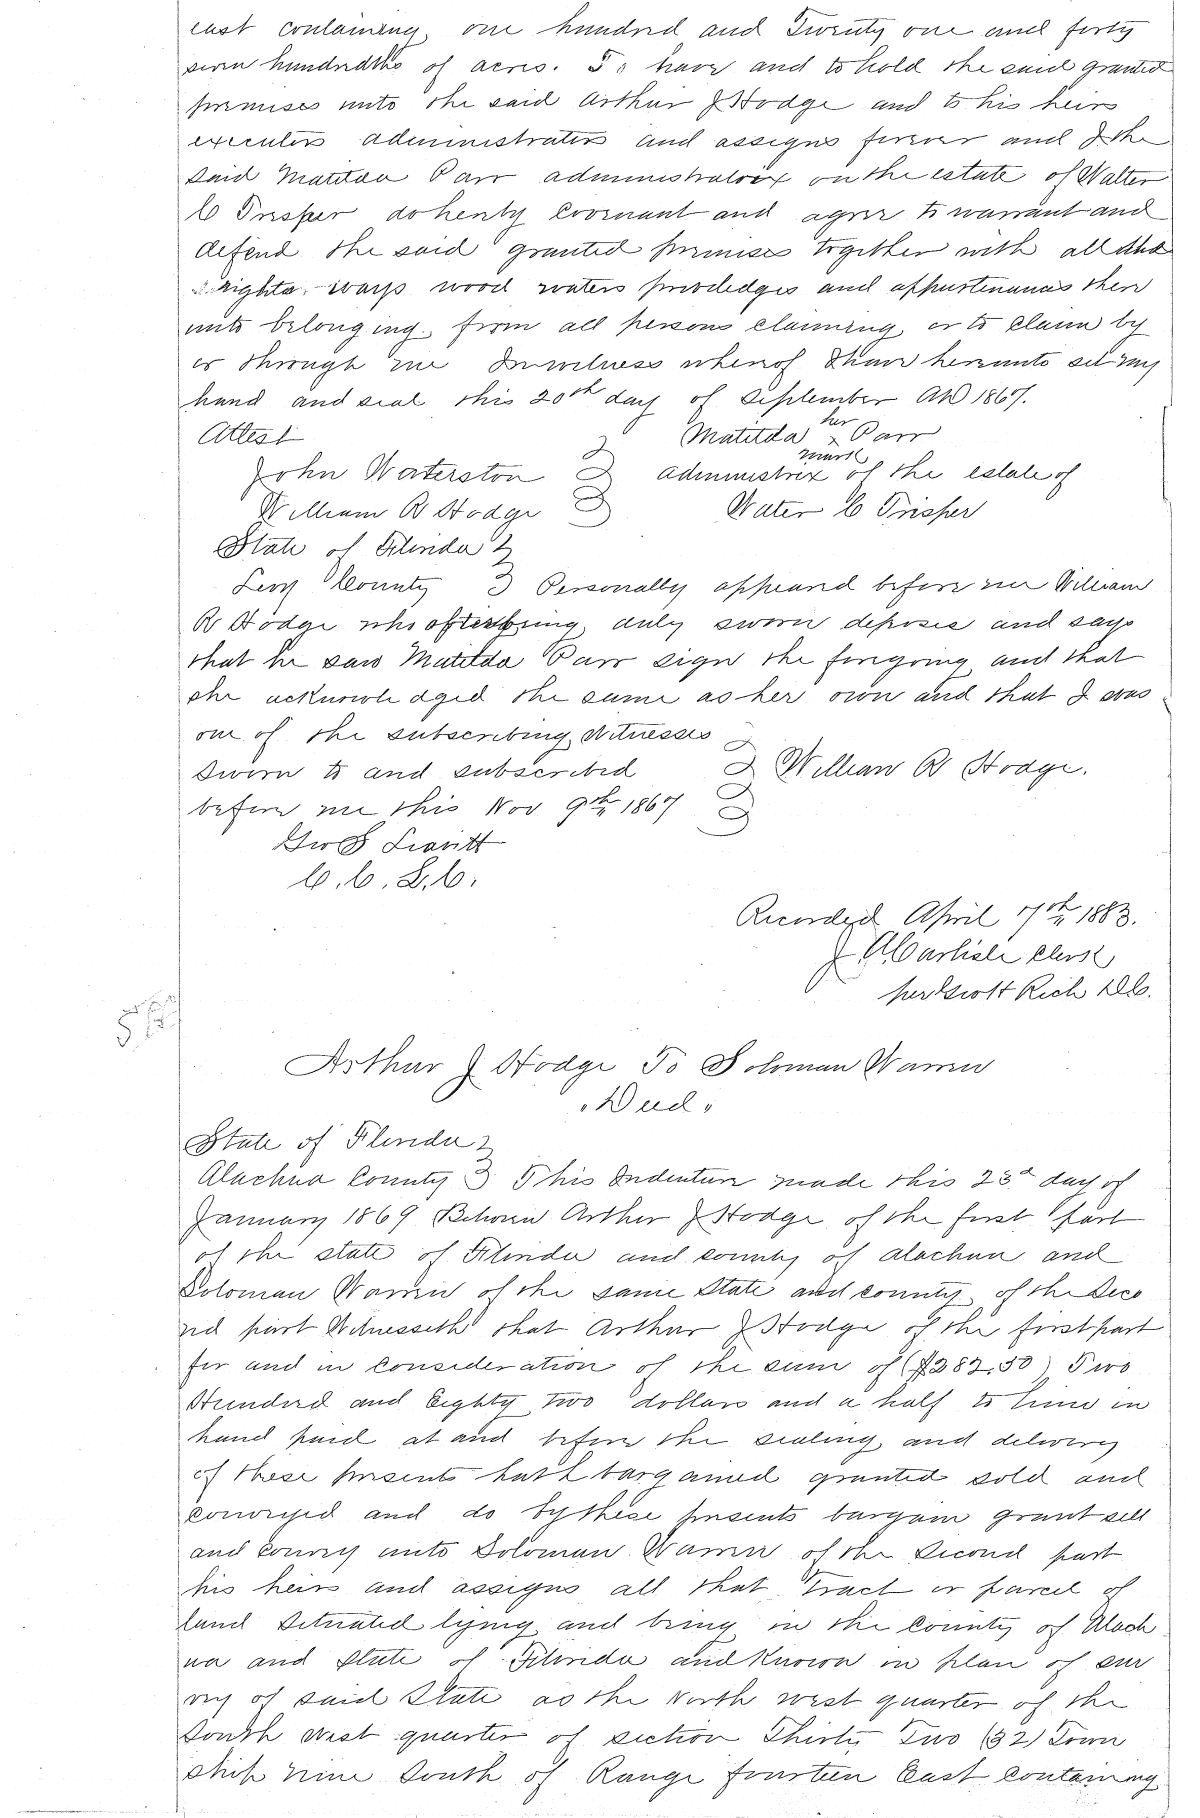 east containing one hundred and Twenty one and forty
seven hundredths of acres. To have and to hold the said granted
premises unto the said Arthur J Hodge and to his heirs
executors administrators and assigns forever and I the
said Matilda Parr administratrix on the estate of Walter
C Prisper do hereby Covenant and agree to warrant and
defend the said granted premises together with all the
rights, ways wood waters priviledges and appurtenances there
unto belonging, from all persons claiming or to claim by
or through me In witness whereof I have hereunto set my
hand and seal this 20th day of September AD 1867.
Attest
her
Matilda x Parr
mark
John Waterston administrix of the estate of
William R Hodge Water C Prisper
State of Florida
Levy County Personally appeared before me William
R Hodge who after being duly sworn deposes and says
that he saw Matilda Parr sign the foregoing and that
she acknowledged the same as her own and that I was
one of the subscribing Witnesses
Sworn to and subscribed William R Hodge.
before me this Nov 9th 1867
Geo S Leavitt
C. C. L. C.
Recorded April 17th 1883.
J A Carlisle Clerk
per Scott Rich D.C.
Arthur J Hodge To Soloman Warren
"Deed"
State of Florida
Alachua County This Indenture made this 23d day of
January 1869 Between Arthur J Hodge of the first part
of the state of Florida and county of Alachua and
Soloman Warren of the same State and county of the Seco
nd part Witnesseth that Arthur J Hodge of the first part
for and in Consideration of the sum of ($282,50) Two
Hundred and Eighty two dollars and a half to him in
hand paid at and before the sealing and delivery
of these presents hath bargained granted sold and
conveyed and do by these presents bargain grant sell
and Convey unto Soloman Warren of the Second part
his heirs and assigns all that Tract or parcel of
land Situated lying and being in the County of Alach
ua and State of Florida and Known in plan of sur
vey of said State as the North west quarter of the
South West quarter of section Thirty Two (32) Town
ship nine South of Range fourteen East containing